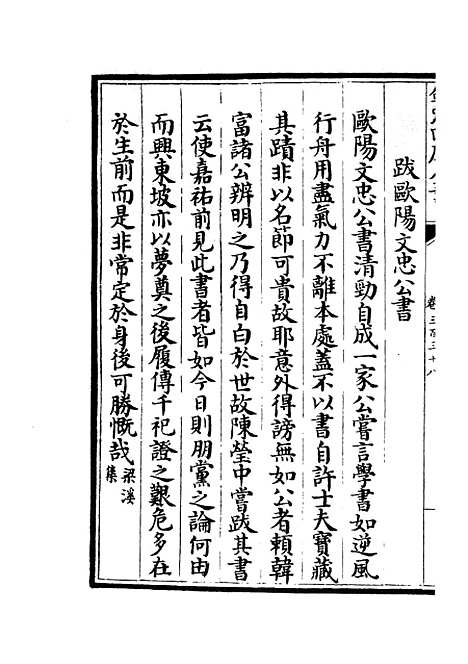 跋歐陽文忠公書
歐陽文忠公書清勁自成一家公嘗言學書如逆風
行舟用盡氣力不離本處蓋不以書自許士夫寶藏
其蹟非以名節可貴故耶意外得謗無如公者賴韓
富諸公辨明之乃得自白於世故陳瑩中嘗跋其書
云使嘉祐前見此書者皆如今日則朋黨之論何由
而興東坡亦以夢奠之後履傳千祀證之艱危多在
於生前而是非常定於身後可勝慨哉梁溪集
卷三百三十八